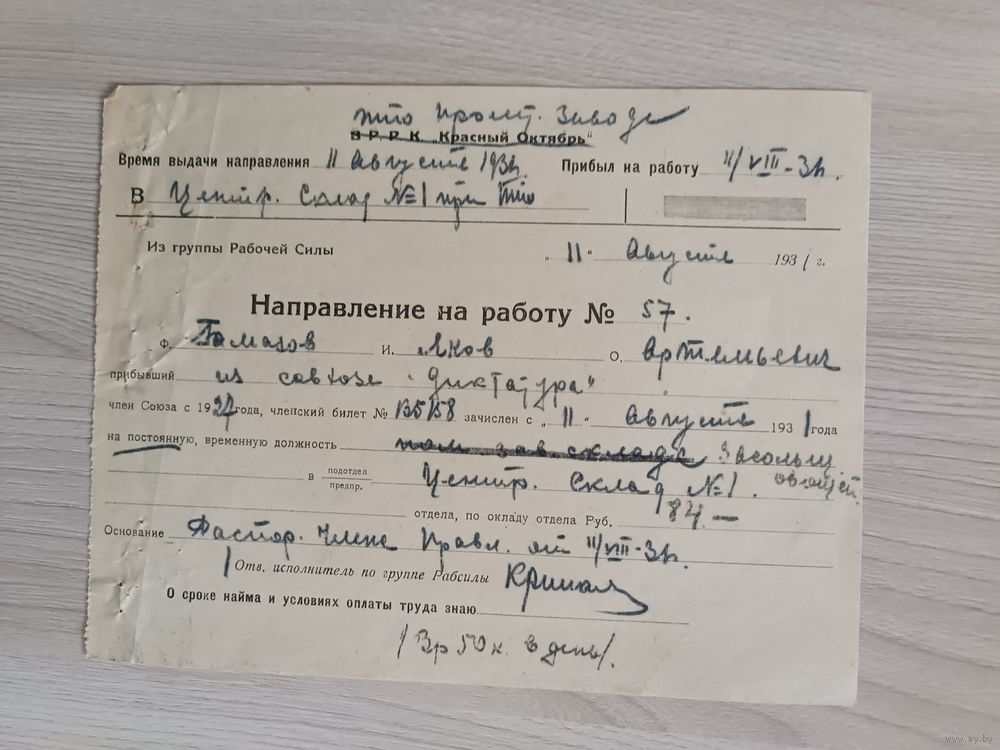 В Р. Р. К. „Красный Октябрь“
Время выдачи направления 11 Августа 1931г. Прибыл на работу 11/VIII-31г.
В Центр. Склад №1 при
Из группы Рабочей Силы „11“ Августа 1931 г.
Направление на работу № 57.
Ф. И. Яков О. Артемьевич
прибывший из совхоза „Диктатура“
член Союза с 1927года, членский билет № зачислен с „11“ Августа 1931года
на постоянную, временную должность пом зав. склада Засольщ.
овощей
в подотдел предпр. Центр. Склад №1.
отдела, по окладу отдела Руб. 84.—
Основание Распор. Члена Правл. от 11/VIII-31г.
Отв. исполнитель по группе Рабсилы
О сроке найма и условиях оплаты труда знаю
/3р 50к. в день/.
www.ay.by